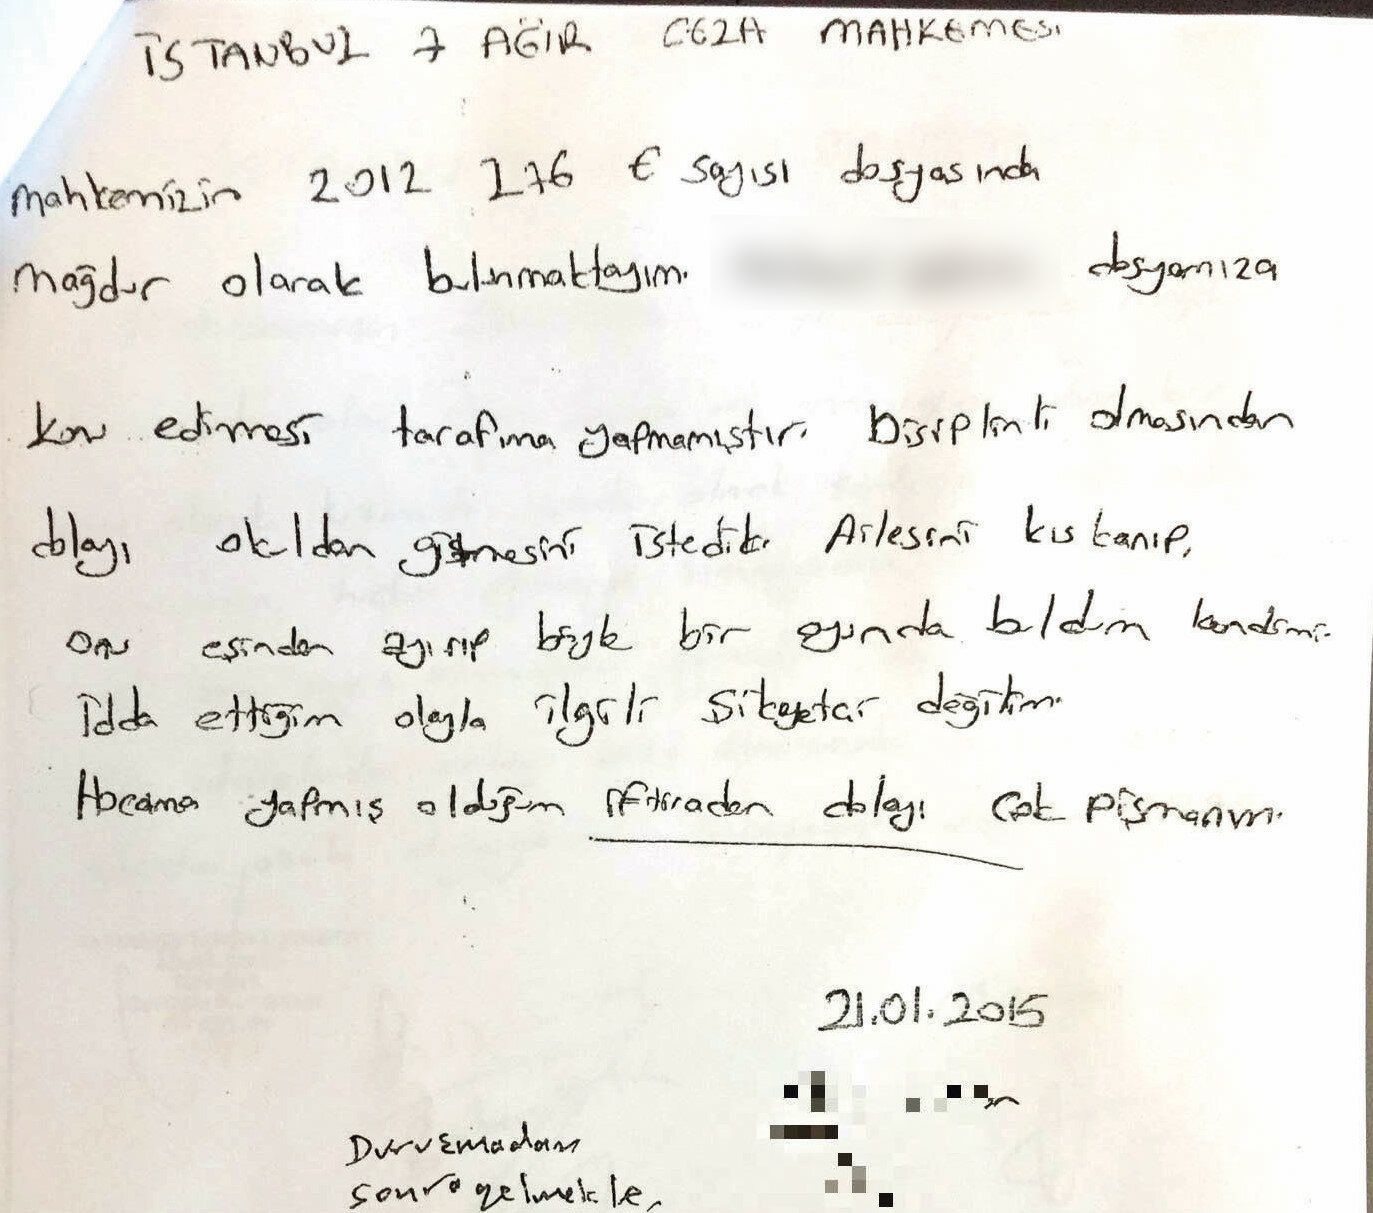 İSTANBUL 7 AĞIR CEZA MAHKEMESİ
mahkemizin 2012 276 E sayısı dosyasında
mağdur olarak bulunmaktayım. dosyamıza
konu edilmesi tarafıma yapmamıştır. Disiplinli olmasından
dolayı okuldan gitmesini istedik. Ailesini kıskanıp,
onu eşinden ayırıp büyük bir oyunda buldum kendimi.
İdda ettiğim olayla ilgili şikayetçi değilim.
Hocama yapmış olduğum iftiradan dolayı çok pişmanım.
21.01.2015
Duruşmadan
sonra gelmekle,